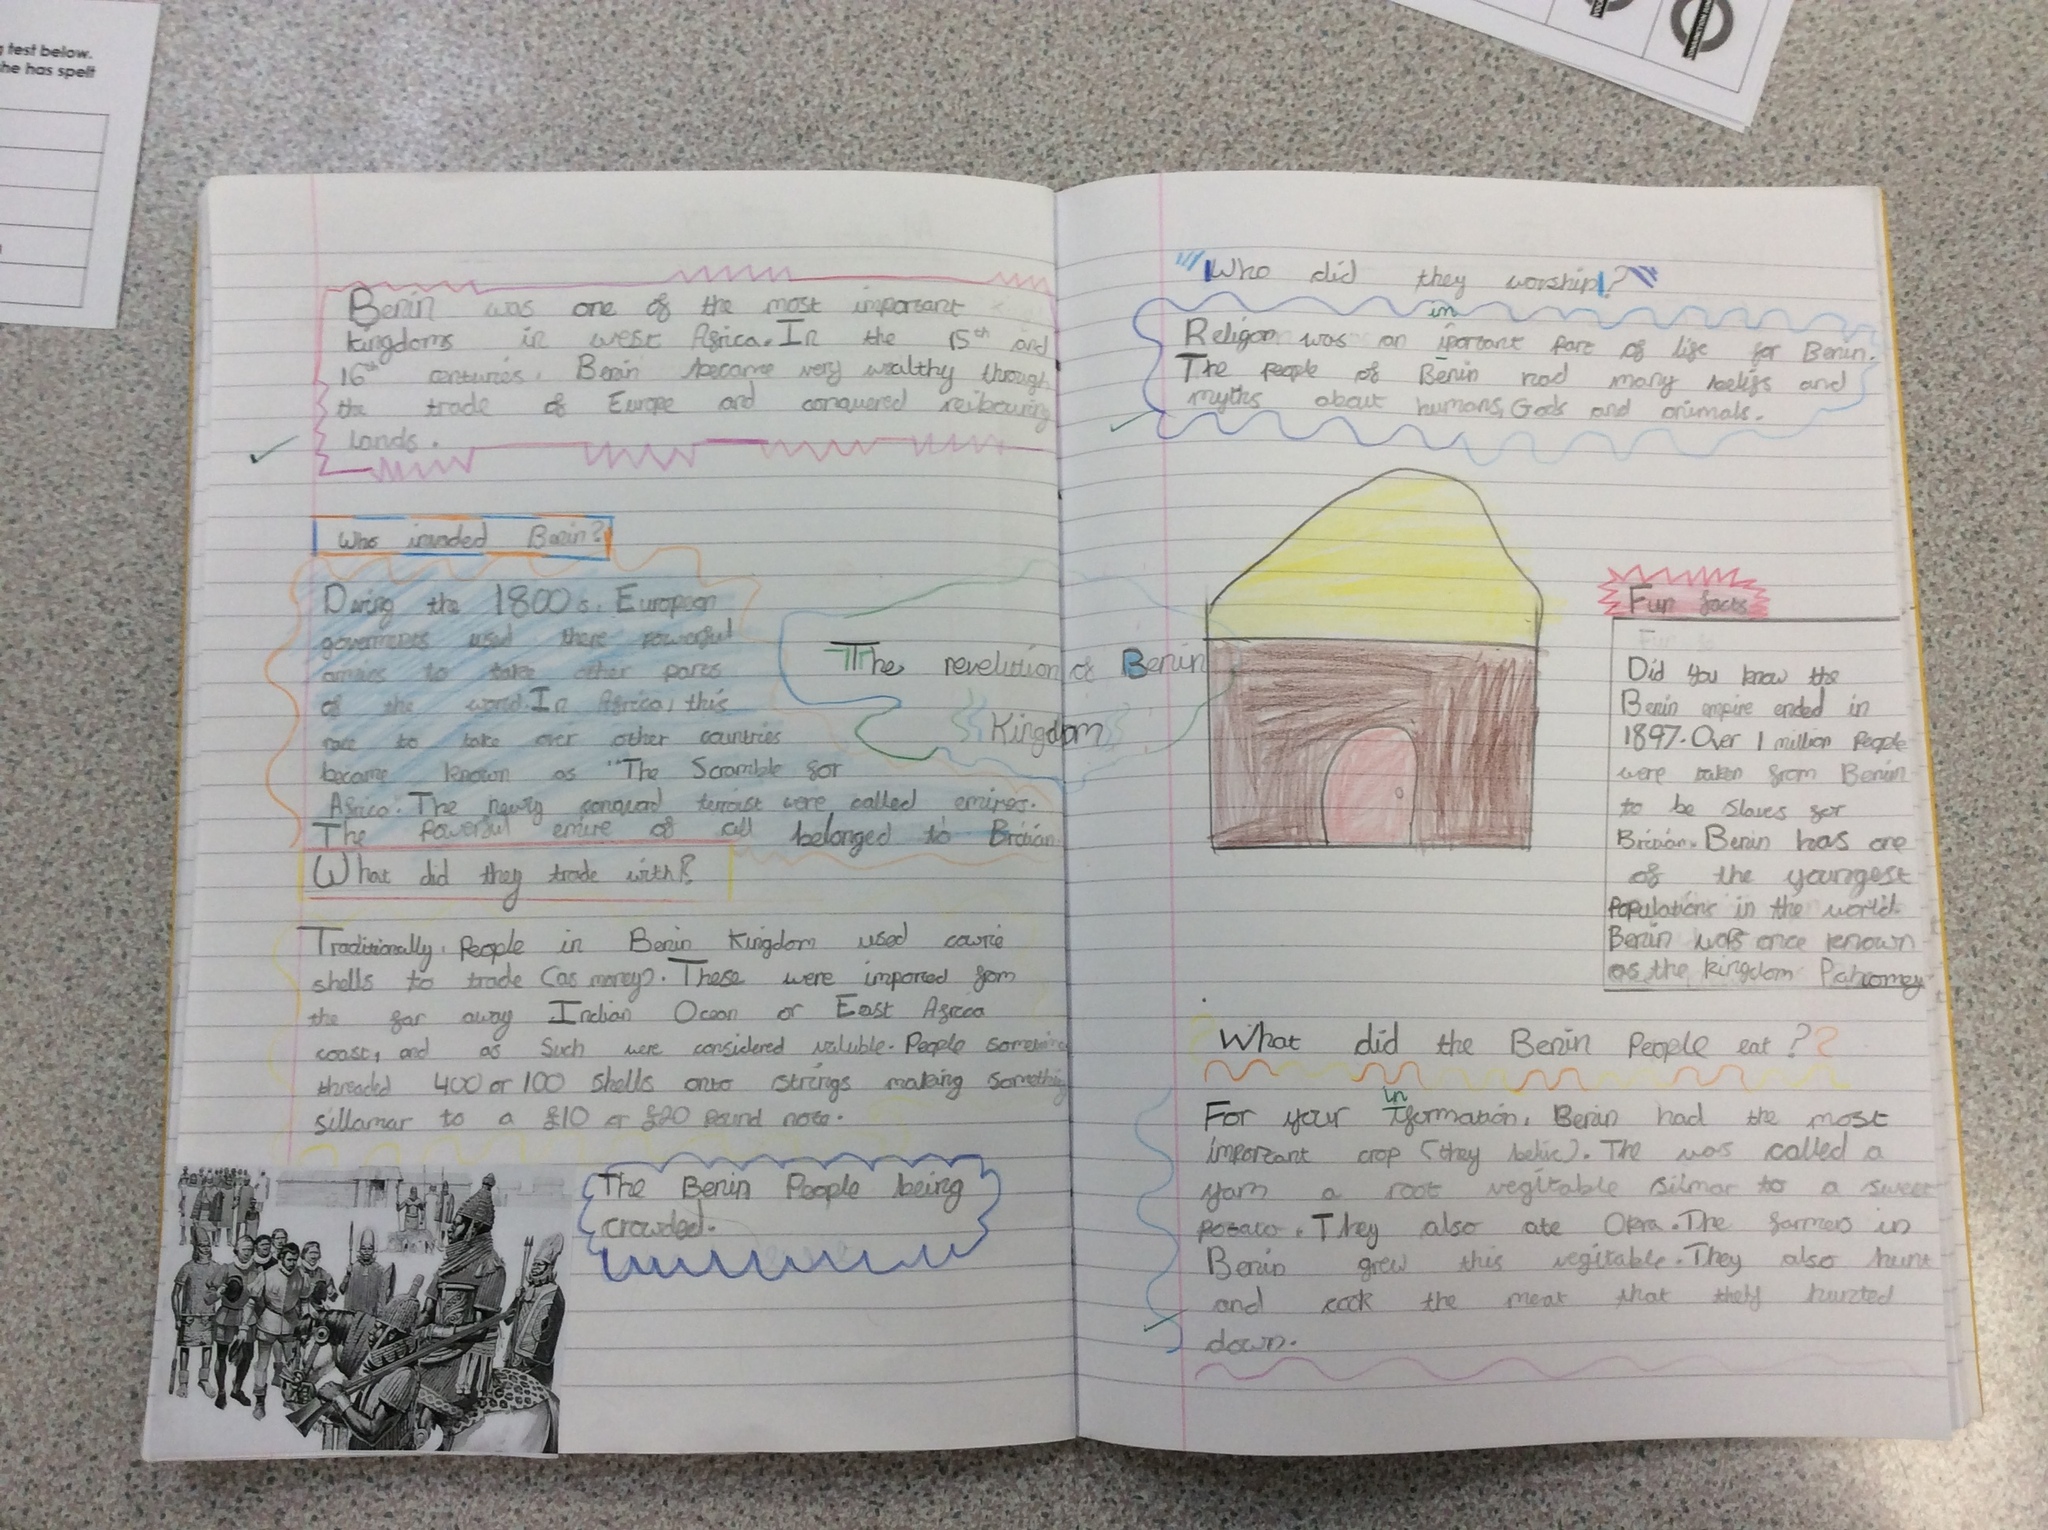 g test below.
he has spelt
Benin was one of the most important
kingdoms in west Africa. In the 15th and
16th centuries. Benin became very wealthy through
the trade of Europe and conquered neibouring
lands.
Who invaded Benin?
During the 1800s. European
goverments used there powerful
armies to take other parts
of the world. In Africa, this
race to take over other countries
became known as "The Scramble for
Africa". The newly conquard were called emires.
The Powerful emire of all belonged to Britian
The revelution of Benin
Kingdom
What did they trade with?
Traditionally. People in Benin Kingdom used cowrie
shells to trade (as money). These were imported from
the far away Indian Ocean or East Africa
coast, and as such were considered valuble. People
threaded 400 or 100 shells onto strings making something
sillamar to a £10 or £20 pound note.
The Benin People being
crowded.
Who did they worship?
in
Religon was an iportant part of life for Benin.
The people of Benin had many beliefs and
myths about humans, Gods and animals.
Fun facts
Did you know the
Benin empire ended in
1897. Over 1 million People
were taken from Benin
to be slaves for
Britian. Benin has one
of the youngest
Populations in the world.
Benin was once known
as the kingdom Pahomey
What did the Benin People eat??
in
For your formation, Benin had the most
important crop (they beliv). The was called a
yam a root vegitable silmar to a sweet
potato. They also ate Okra. The farmers in
Benin grew this vegitable. They also hunt
and cook the meat that they hunted
down.